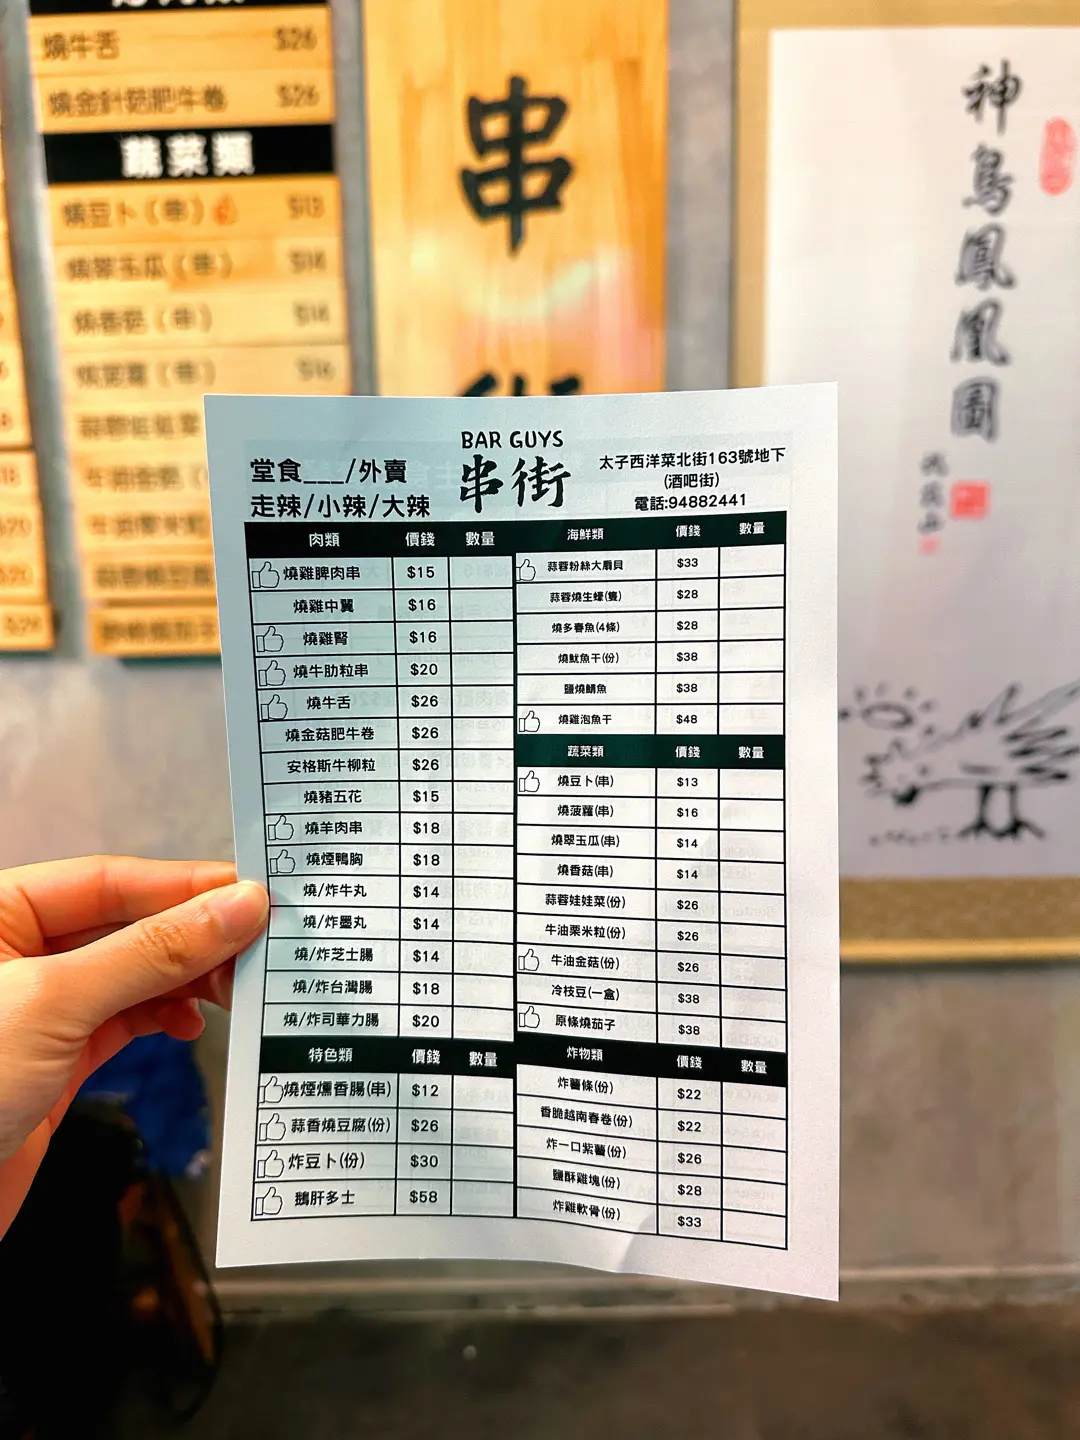 燒牛舌 $26
燒金針菇肥牛卷 $26
蔬菜類
燒豆卜（串） $13
燒翠玉瓜（串） $14
燒香菇（串） $14
燒菠蘿（串） $16
串
神鳥鳳凰圖
BAR GUYS
串街
堂食___/外賣
走辣/小辣/大辣
太子西洋菜北街163號地下
(酒吧街)
電話:94882441
肉類 價錢 數量
燒雞脾肉串 $15
燒雞中翼 $16
燒雞腎 $16
燒牛肋粒串 $20
燒牛舌 $26
燒金菇肥牛卷 $26
安格斯牛柳粒 $26
燒豬五花 $15
燒羊肉串 $18
燒煙鴨胸 $18
燒/炸牛丸 $14
燒/炸墨丸 $14
燒/炸芝士腸 $14
燒/炸台灣腸 $18
燒/炸司華力腸 $20
特色類 價錢 數量
燒煙燻香腸(串) $12
蒜香燒豆腐(份) $26
炸豆卜(份) $30
鵝肝多士 $58
海鮮類 價錢 數量
蒜蓉粉絲大扇貝 $33
蒜蓉燒生蠔(隻) $28
燒多春魚(4條) $28
燒魷魚干(份) $38
鹽燒鯖魚 $38
燒雞泡魚干 $48
蔬菜類 價錢 數量
燒豆卜(串) $13
燒菠蘿(串) $16
燒翠玉瓜(串) $14
燒香菇(串) $14
蒜蓉娃娃菜(份) $26
牛油粟米粒(份) $26
牛油金菇(份) $26
冷枝豆(一盒) $38
原條燒茄子 $38
炸物類 價錢 數量
炸薯條(份) $22
香脆越南春卷(份) $22
炸一口紫薯(份) $26
鹽酥雞塊(份) $28
炸雞軟骨(份) $33